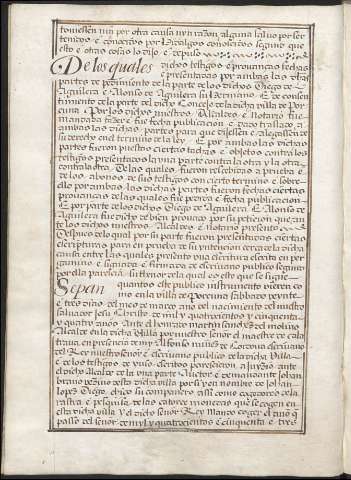 touiessen nin por otra causa nin razon, alguna saluo por ser
tenidos e conoçidos por Hidalgos conosçidos segund que
esto e otras cosas lo dixo e depuso
De los quales dichos testigos e prouanças fechas
e presentadas por ambas las dhas
partes de pedimiento de la parte de los dichos Diego de
Aguilera e Alonso de Aguilera su hermano E de consen
timiento de la parte del dicho Conçejo de la dicha villa de Por
cuna Por los dichos nuestros Alcaldes e notario fue
mandada fazer e fue fecha publicacion e dado traslado a
ambas las dichas partes para que dixessen e alegassen de
su derecho en el termino de la ley E por ambas las dichas
partes fueron puestas ciertas tachas e objetos contra los
testigos presentados la una parte contra la otra y la otra
contra la otra De las quales fueron resçebidas a prueba e
de los abonos de sus testigos con cierto termino e sobre
ello por ambas las dichas partes fueron fechas ciertas
prouanças de las quales fue pedida e fecha publicacion
E por parte de los dichos Diego de Aguilera E Alonso de
Aguilera fue dicho de bien prouado por su peticion que an
te los dichos nuestros Alcaldes E notario presento
Despues de lo qual por su parte fueron presentadas ciertas
escripturas para en prueba de su yntencion çerca de la dicha
causa entre las quales presento una escritura escrita en per
gamino e signada e firmada de escriuano publico segund
por ella paresçia su thenor de la qual es este que se sigue
Sepan quantos este publico instrumento vieren co
mo en la villa de Porcuna sabbado veynte
e tres dias del mes de março año del nacimiento del nuestro
saluador Jesu Christo de mil y quatrocientos y cinquenta
y quatro años Ante el honrado martin sanches del molino
Alcalde en la dicha Villa por nuestro señor el maestre de cala
traua en presencia de my Alfonso nuñes de Cordoua escriuano
del Rey nuestro señor E escriuano publico de la dicha Villa
e de los testigos de yuso escritos paresçieron a juyzio ante
el dicho Alcalde de la una parte Auctor e demandante Johan
brauo vezino desta dicha villa por si y en nombre de Johan
lopes Diego, chico su compañero assi como cogedores de la
rastra e pesquisa de las catorze monedas que se cogen en
esta dicha villa Y el dicho señor Rey mando coger el año
passo del señor de mil y quatrocientos e cinquenta e tres